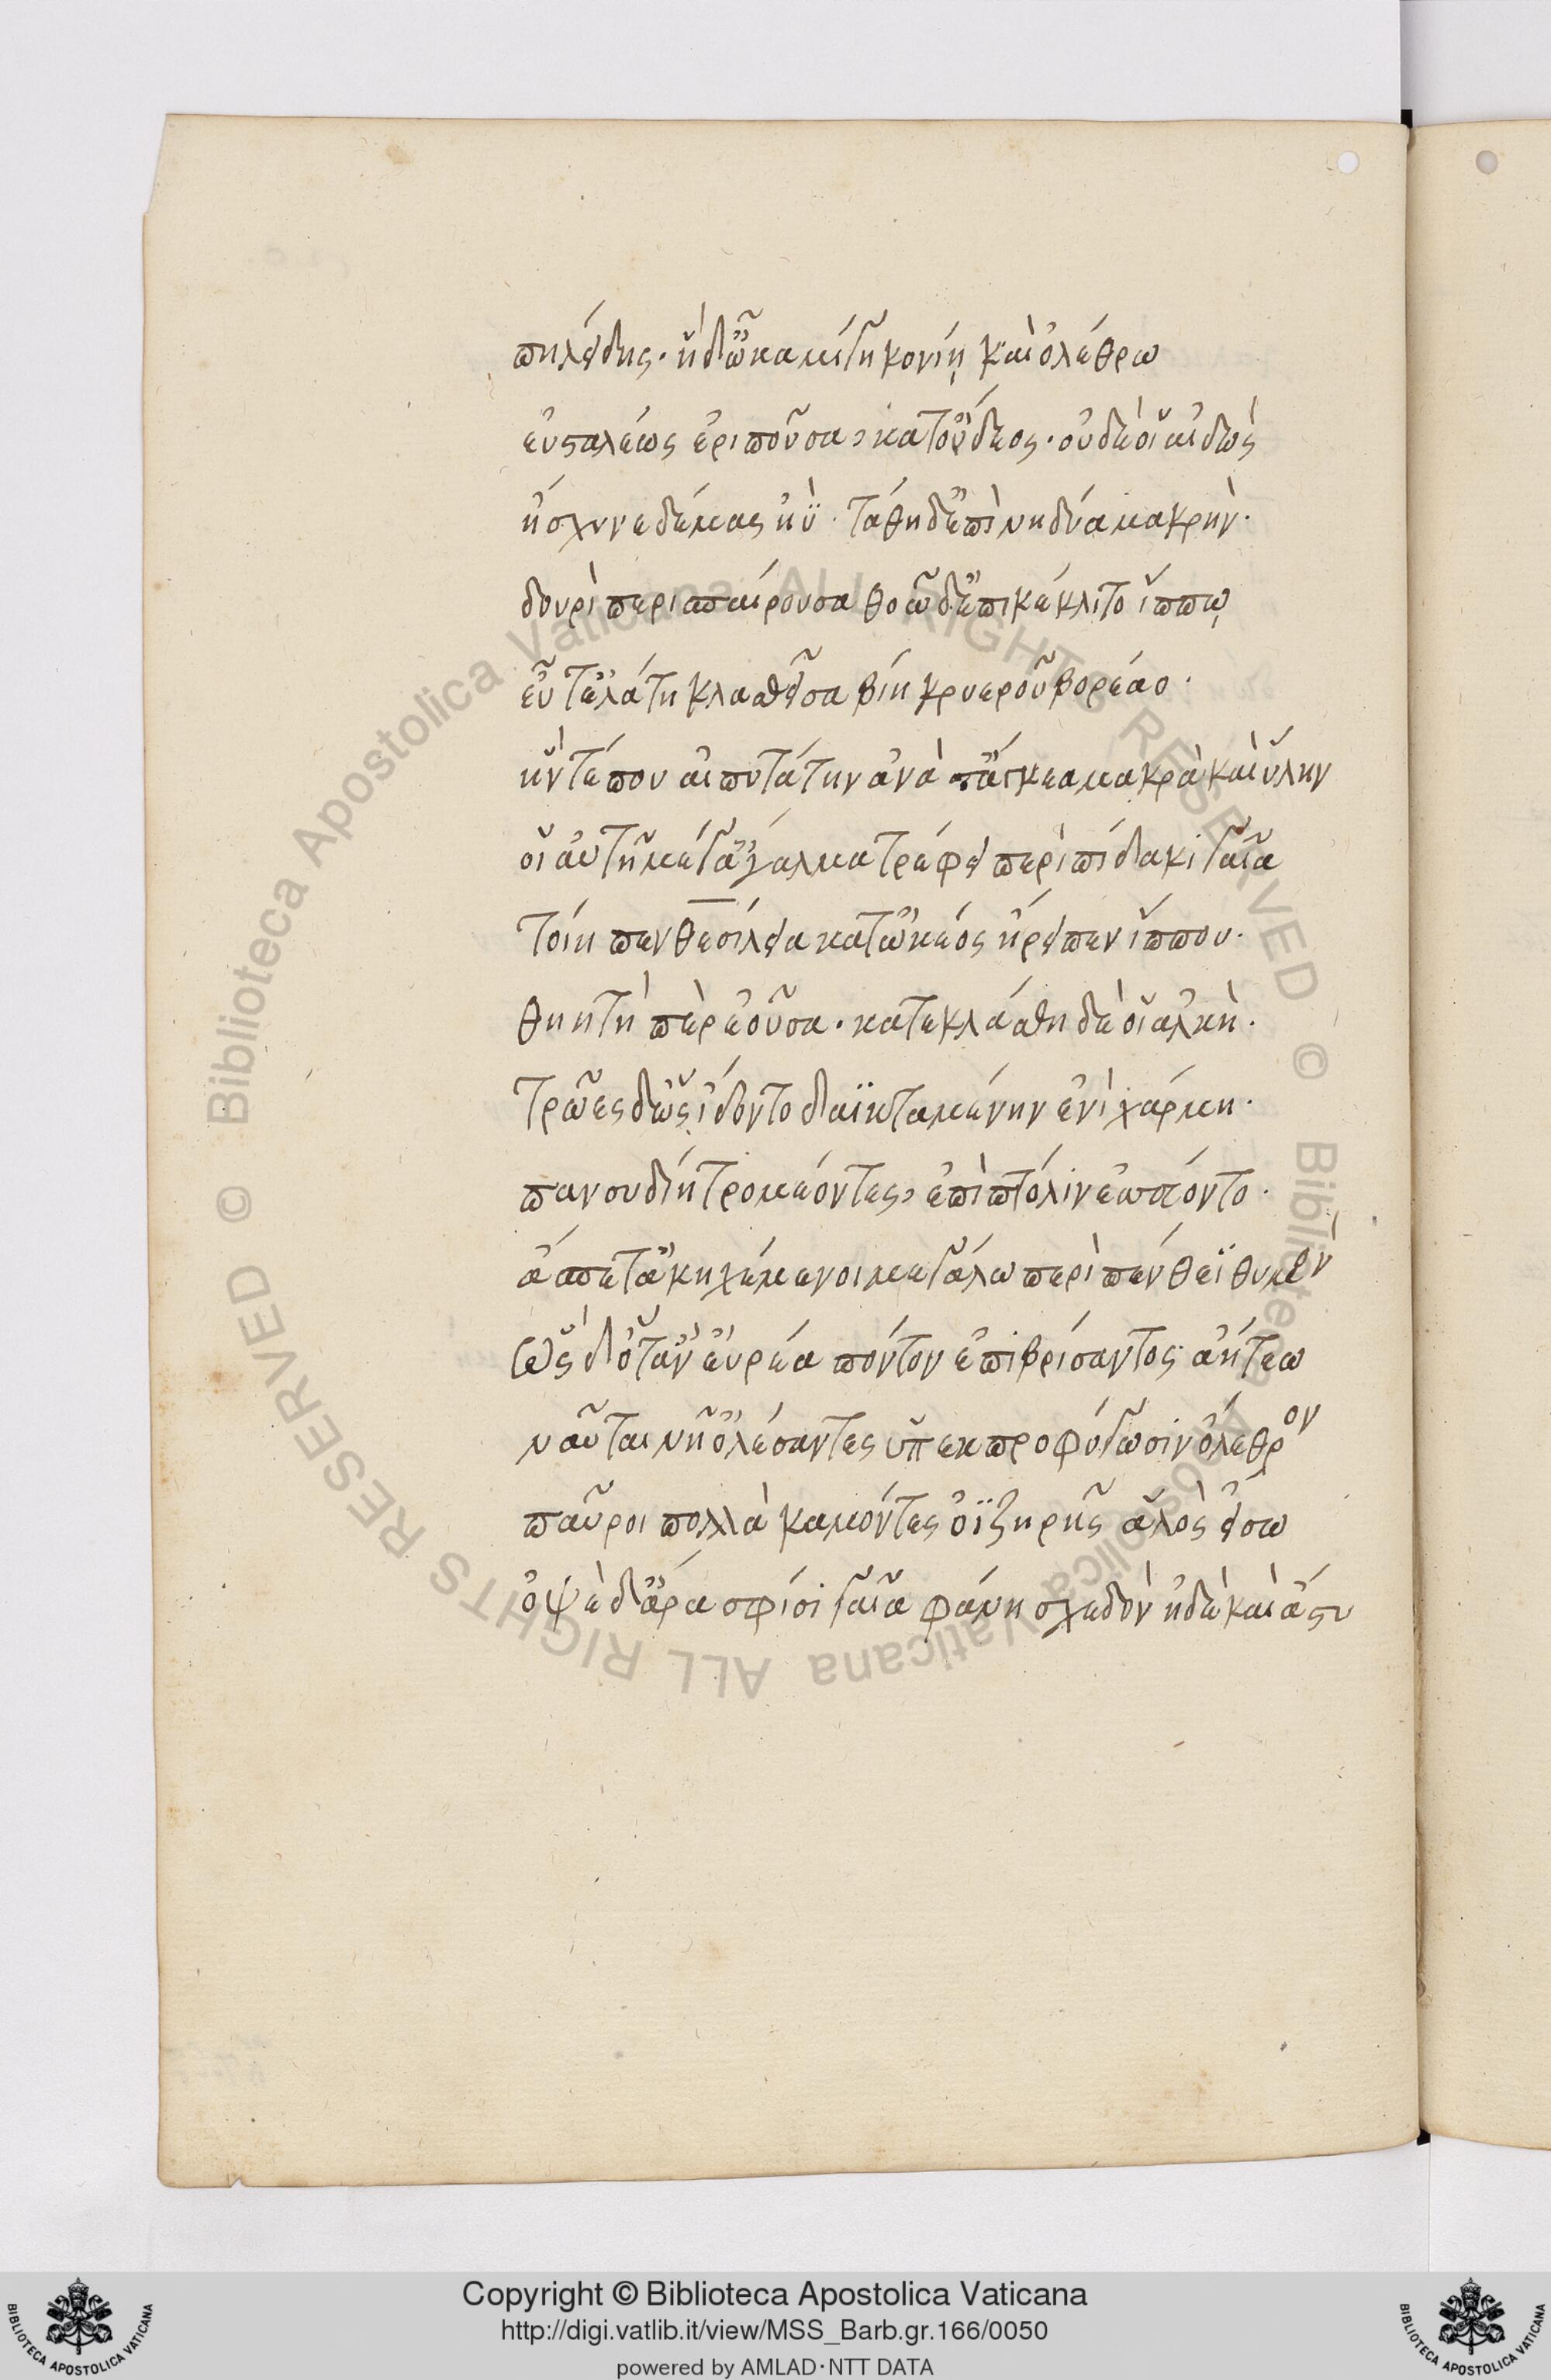 πηλείδης· ἡ δ' ὦκα μίγη κονίῃ καὶ ὀλέθρω
εὐσταλέως ἐριποῦσα, κατ' οὔδεος· οὐδέ οἱ αἰδὼς
ἤσχυνε δέμας ἠΰ· τάθη δ' ἐπὶ νηδύα μακρὴν·
δουρὶ περισπαίρουσα θοῶ δ' ἐπικέκλιτο ἵππῳ
εὖτ' ἐλάτη κλασθεῖσα βίη κρυεροῦ βορέαο·
ἥν τέ που αἰπυτάτην ἀνὰ πάγκεα μακρὰ καὶ ὕλην
οἷ αὐτῆ μέγ' ἄγαλμα τρέφει περὶ πίδακι γαῖα
τοίη πενθεσίλεια κατ' ὠκέος ἤρειπεν ἵππου·
θηητή περ ἐοῦσα· κατεκλάσθη δέ οἱ ἀλκὴ·
Τρῶες δ' ὡς ἴδοντο δαϊκταμένην ἐνὶ χάρμη·
πανσυδίη τρομέοντες, ἐπὶ πτόλιν ἐσσεύοντο·
ἄσπετ' ἀκηχέμενοι μεγάλω περὶ πένθεϊ θυμὸν
Ὡς δ' ὅταν εὐρέα πόντον ἐπιβρίσαντος ἀήτεω
ναῦται νῆ' ὀλέσαντες ὑπεκπροφύγωσιν ὄλεθρον
παῦροι πολλὰ καμόντες ὀϊζηρῆς ἁλὸς εἴσω
ὀψὲ δ' ἄρα σφίσι γαῖα φάνη σχεδὸν ἠδὲ καὶ ἄστυ
Copyright © Biblioteca Apostolica Vaticana
http://digi.vatlib.it/view/MSS_Barb.gr.166/0050
powered by AMLAD·NTT DATA